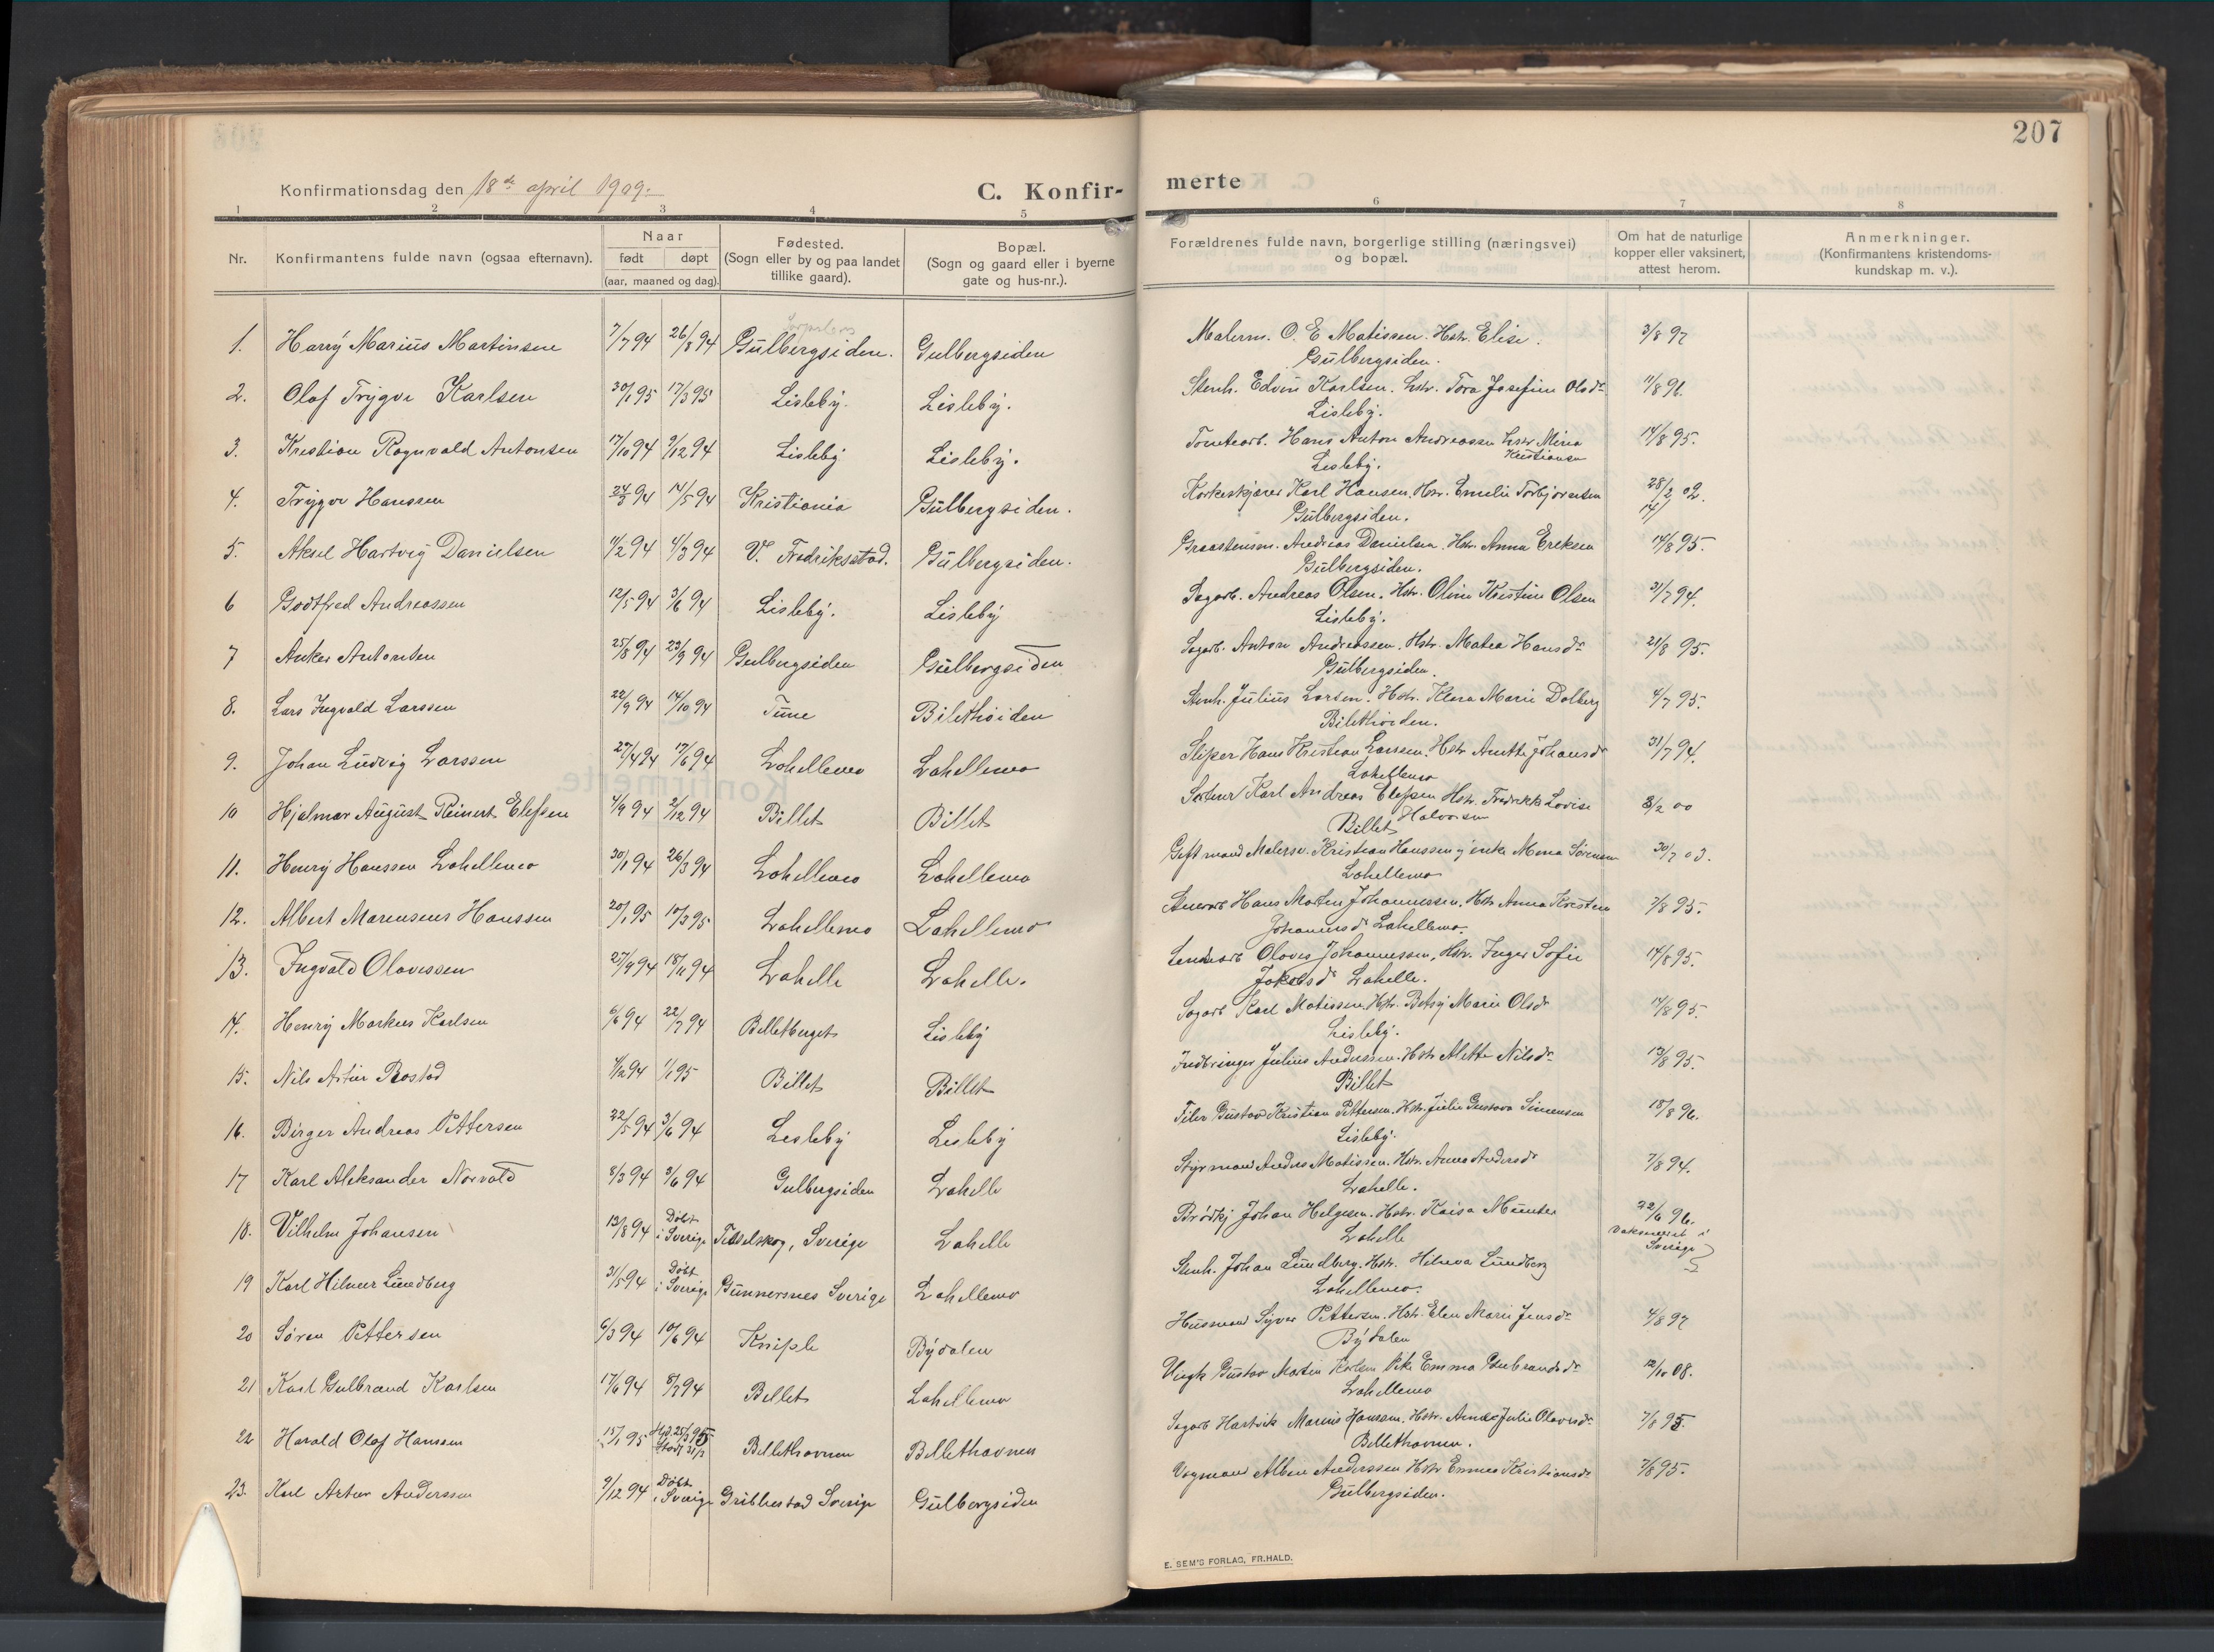 207
Konfirmationsdag den 18de april 1909.
C. Konfir-
merte
1 2 3 4 5 6 7 8
Nr.
Konfirmantens fulde navn (ogsaa efternavn).
Naar
født døpt
(aar, maaned og dag).
Fødested.
(Sogn eller by og paa landet
tillike gaard).
Bopæl.
(Sogn og gaard eller i byerne
gate og hus-nr.).
Forældrenes fulde navn, borgerlige stilling (næringsvei)
og bopæl.
Om hat de naturlige
kopper eller vaksinert,
attest herom.
Anmerkninger.
(Konfirmantens kristendoms-
kundskap m. v.).
1. Harry Marius Martinsen 7/7 94 26/8 94 Gulbergsiden. Gulbergsiden Malerm. O. E Matissen. Hstr. Elise. 3/8 97
Gulbergsiden.
2. Olaf Trygve Karlsen 30/1 95 17/3 95 Lisleby. Lisleby. Stenh. Edvin Karlsen. Hstr. Tora Josefine Olsdr 11/8 96.
Lisleby.
3. Kristian Ragnvald Antonsen 17/10 94 9/12 94 Lisleby Lisleby. Tomtearb. Hans Anton Andreassen Hstr Mina 14/8 95.
Kristiansen
Lisleby.
4. Trygve Hanssen 24/3 94 14/5 94 Kristiania Gulbergsiden. Korkeskjærer Karl Hansen. Hstr. Emilie Torbjørnsen 28/2 02.
Gulbergsiden.
5. Aksel Hartvig Danielsen 11/2 94 4/3 94 V. Fredriksstad. Gulbergsiden. Graastensm. Andreas Danielsen. Hstr. Anna Eriksen 14/8 95.
Gulbergsiden.
6 Godtfred Andreassen 12/5 94 3/6 94 Lisleby. Lisleby Sagarb. Andreas Olsen. Hstr. Oline Kristine Olsen 31/7 94.
Lisleby.
7 Anker Antonsen 25/8 94 23/9 94 Gulbergsiden Gulbergsiden Sagarb. Anton Andreassen. Hstr. Matea Hansdr 21/8 95.
Gulbergsiden.
8. Lars Ingvald Larssen 22/9 94 14/10 94 Tune Bilethøiden Stenh. Julius Larsen. Hstr. Klara Marie Dolberg 4/7 95.
Bilethøiden.
9. Johan Ludvig Larssen 27/4 94 17/6 94 Lahellemo Lahellemo Sliper Hans Kristian Larssen. Hstr Anette Johansdr 31/7 94.
Lahellemo
10 Hjalmar August Reinert Elefsen 4/9 94 2/12 94 Billet Billet Karl Andreas Elefsen Hstr. Fredrikke Lovise 8/2 00
Halvorsen
Billet
11. Henry Hanssen Lahellemo 30/1 94 26/3 94 Lahellemo Lahellemo Gift mand Malersv. Kristian Hanssen og enke Mina Sørensen 30/7 03.
Lahellemo
12. Albert Marensius Hanssen 20/1 95 10/3 95 Lahellemo Lahellemo Hans Martin Johannessen. Hstr Anna Kristine 7/8 95.
Johannesdr Lahellemo.
13. Ingvald Olavessen 27/9 94 18/11 94 Lahelle Lahelle. Olaves Johannessen, Hstr. Inger Sofie 14/8 95.
Jakobsdr Lahelle.
14. Henry Markus Karlsen 6/6 94 22/7 94 Billetberget Lisleby Sagarb Karl Matissen. Hstr. Betsy Marie Olsdr 14/8 95.
Lisleby.
15. Nils Artur Rostad 4/12 94 1/1 95 Billet Billet Indbringer Julius Anderssen. Hstr Mette Nilsdr 13/8 95.
Billet
16. Birger Andreas Pettersen 22/5 94 3/6 94 Lisleby Lisleby Filer Gustav Kristian Pettersen. Hstr. Julie Gustava Simensen 18/8 96.
Lisleby.
17 Karl Aleksander Norvald 8/3 94 3/6 94 Gulbergsiden Lahelle Styrmand Anders Matissen. Hstr. Anna Andersdr 7/8 94.
Lahelle.
18. Vilhelm Johansen 13/8 94 Døbt i Sverige Tisselskog, Sverige Lahelle Brødkj Johan Helgesen. Hstr. Kaisa Munter 22/6 96.
Lahelle
vaksineret i
Sverige
19 Karl Hilmer Lundberg 31/5 94 Døbt i Sverige Gunnersnes Sverige Lahellemo Stenh. Johan Lundberg. Hstr. Hilma Lundberg
Lahellemo.
20 Søren Pettersen 6/3 94 10/6 94 Kniple Bydalen Husmand Syver Pettersen. Hstr. Elen Marie Jensdr 4/8 97
Bydalen
21 Karl Gulbrand Karlsen 17/6 94 8/7 94 Billet Lahellemo Ungk Gustav Martin Karlsen Pike Emma Gulbrandsdr 12/10 08.
Lahellemo
22 Harald Olaf Hansen 15/1 95 Hjd. 25/1 95 Stadf 31/3 Billethavnen Billethavnen Sagarb Hartvik Marius Hanssen. Hstr. Anne Julie Olavesdr 7/8 95.
Billethavnen.
23. Karl Artur Anderssen 9/12 94 Døbt i Sverige Gribbestad Sverige Gulbergsiden Vognmand Albin Anderssen Hstr Emma Kristiansdr 7/8 95.
Gulbergsiden.
E. SEM'S FORLAG, FR.HALD.